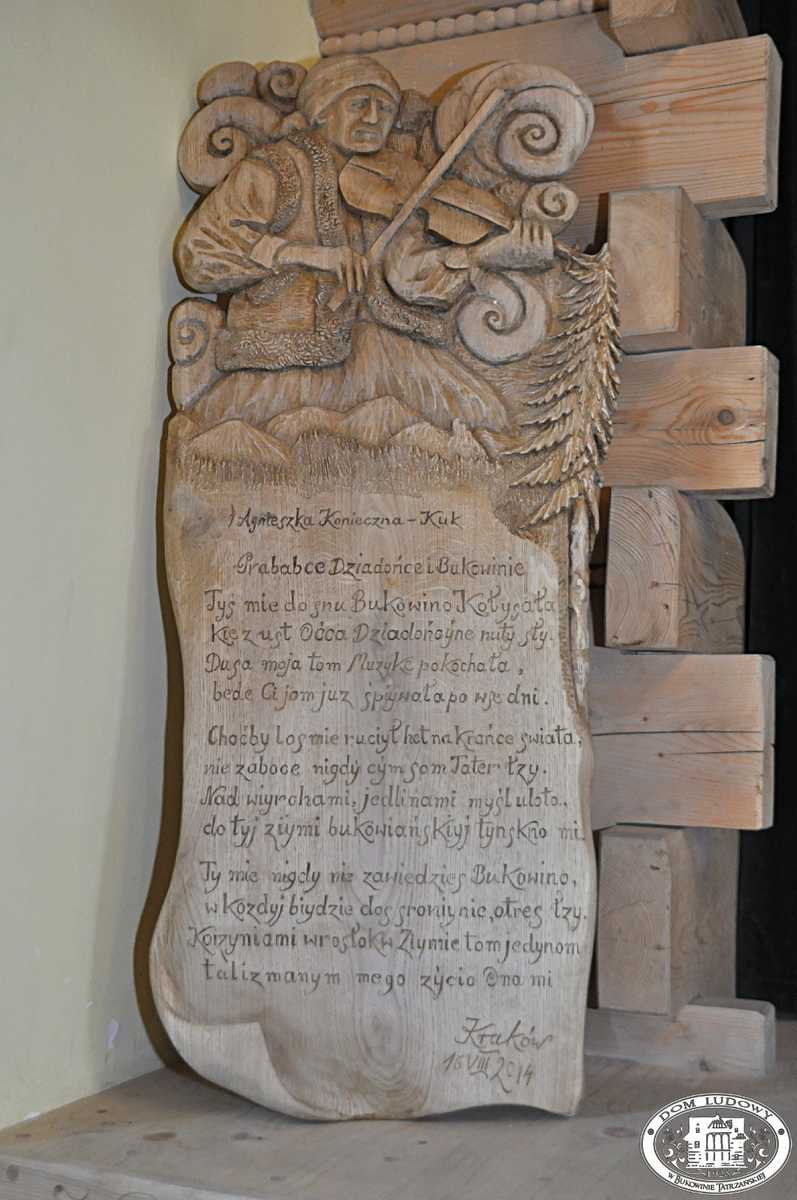 Agnieszka Konieczna-Kuk
Prababce Dziadońce i Bukowinie
Tyś mie do snu Bukowino Kołysała
Kie z ust Oćca Dziadońcyne nuty sły.
Dusa moja tom Muzyke pokochała,
bede Ci jom juz śpiywała po wse dni.
Choćby Los mie ruciył het na krańce świata,
nie zaboce nigdy cym som Tater łzy.
Nad wiyrchami, jedlinami myśl ulato..
do tyj ziymi bukowiańskiyj tynskno mi.
Ty mie nigdy nie zawiedzies Bukowino,
w kozdyj biydzie dos sroniynie, otres łzy.
Korzyniami wrosłok w Ziymie tom jedynom
talizmanym mego zycio Ona mi
Kraków
16 VIII 2014
DOM LUDOWY
W BUKOWINIE TATRZAŃSKIEJ